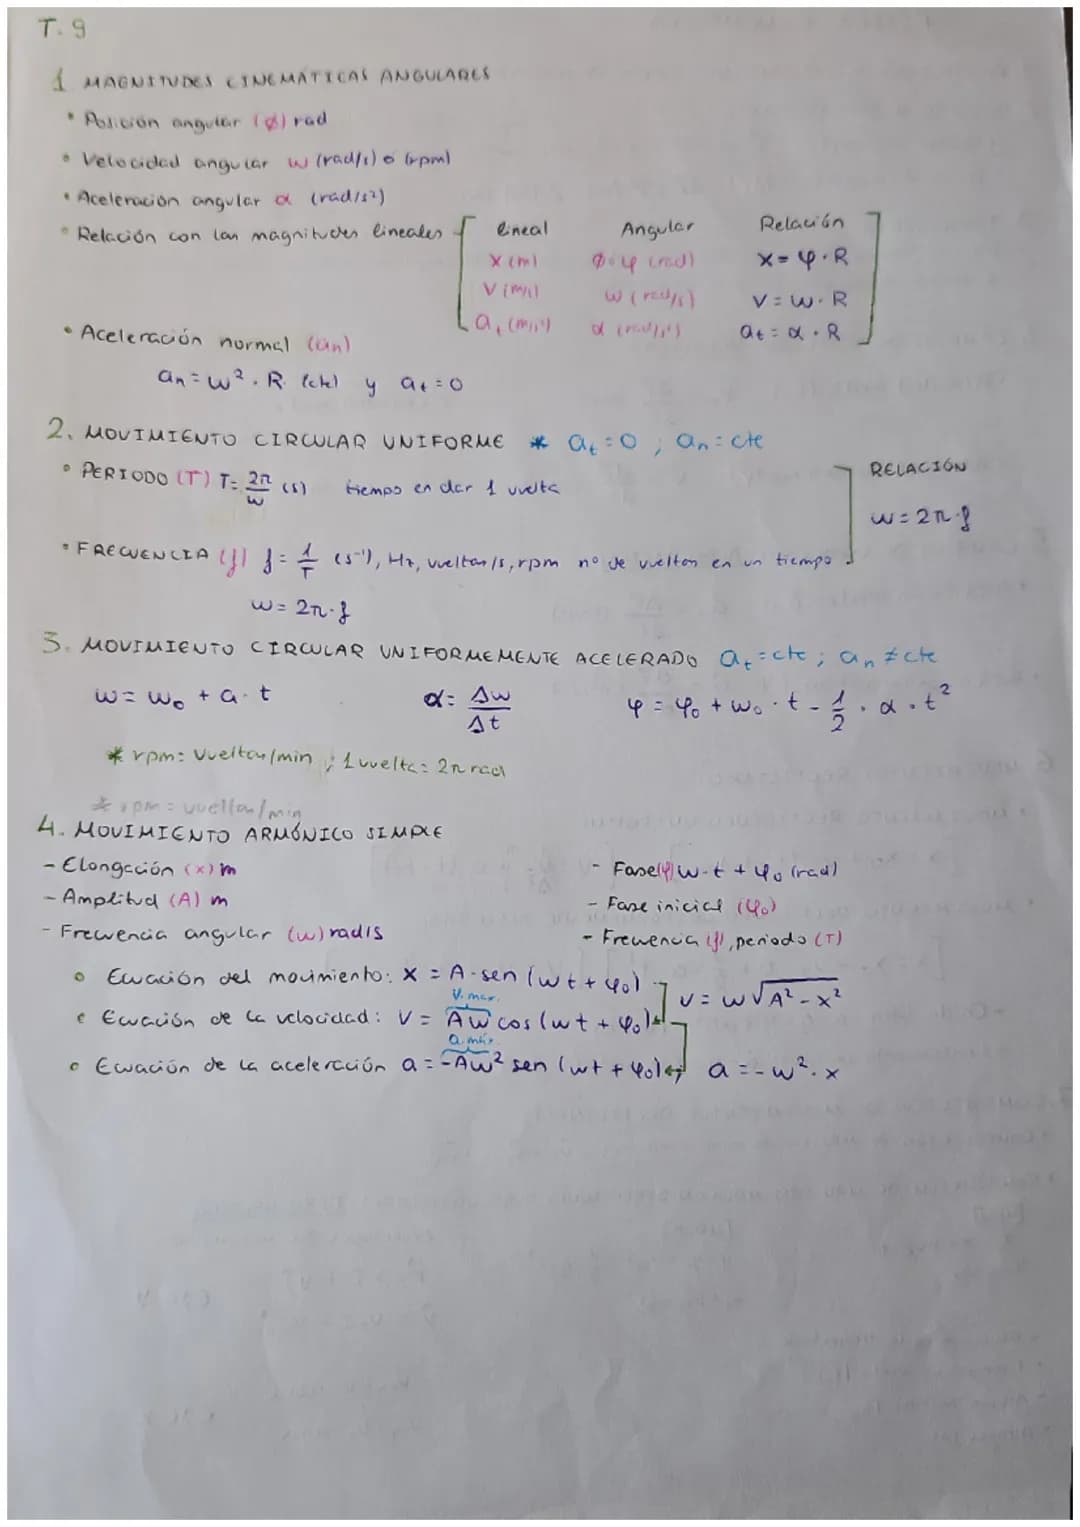 T. 9
1. MAGNITUDES CINEMÁTICAS ANGULARES
• Posición angular (ø) rad
• Velocidad angular w (rad/s) o (rpm)
• Aceleración angular α (rad/s²)
• Relación con las magnitudes lineales
lineal Angular Relación
x (m) ø o φ (rad) x = φ · R
v (m/s) w (rad/s) v = w · R
at (m/s²) α (rad/s²) at = α · R
• Aceleración normal (an)
an = w² · R (cte) y at = 0
2. MOVIMIENTO CIRCULAR UNIFORME * at = 0 ; an = cte
• PERIODO (T) T = 2π/w (s) tiempo en dar 1 vuelta
RELACIÓN
w = 2π · f
• FRECUENCIA (f) f = 1/T (s⁻¹), Hz, vueltas/s, rpm nº de vueltas en un tiempo
w = 2π · f
3. MOVIMIENTO CIRCULAR UNIFORMEMENTE ACELERADO at = cte ; an ≠ cte
w = w₀ + a · t α = Δw/Δt φ = φ₀ + w₀ · t - 1/2 · α · t²
* rpm = vueltas/min ; 1 vuelta = 2π rad
* rpm = vueltas/min
4. MOVIMIENTO ARMÓNICO SIMPLE
- Elongación (x) m
- Amplitud (A) m
- Frecuencia angular (w) rad/s
- Fase (φ) w·t + φ₀ (rad)
- Fase inicial (φ₀)
- Frecuencia (f), periodo (T)
• Ecuación del movimiento: x = A · sen (wt + φ₀)
v. max.
v = w √A² - x²
• Ecuación de la velocidad: v = Aw cos (wt + φ₀)
a. máx.
• Ecuación de la aceleración a = -Aw² sen (wt + φ₀) a = -w² · x